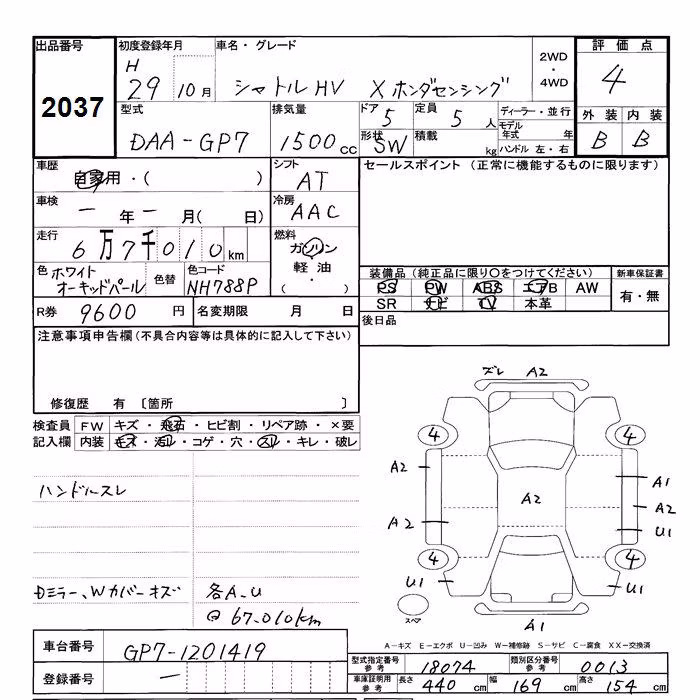 出品番号 初度登録年月 車名・グレード 評価点
2037 H 29 10月 シャトルHV Xホンダセンシング 2WD・4WD 4
型式 排気量 ドア 定員 ディーラー・並行 外装 内装
DAA-GP7 1500cc 5 5人 モデル年式 年 B B
形状 SW 積載 kg ハンドル 左・右
車歴 シフト セールスポイント (正常に機能するものに限ります)
自家用・( ) AT
車検 冷房
ー年ー月( 日) AAC
走行 燃料
6万7千010km ガソリン
軽油
・
( )
色 ホワイトオーキッドパール 色替 色コード NH788P
装備品 (純正品に限り○をつけてください) 新車保証書
PS PW ABS エアB AW 有・無
SR ナビ TV 本革
R券 9600円 名変期限 月 日 後日品
注意事項申告欄(不具合内容等は具体的に記入して下さい)
修復歴 有 〔箇所 〕
検査員 FW キズ・飛石・ヒビ割・リペア跡・×要
記入欄 内装 キズ・汚レ・コゲ・穴・スレ・キレ・破レ
ハンドルスレ
Dミラー、Wカバーキズ 各A-U
@67,010km
ズレ A2
4 4
A2 A1
A2 A2 A2
U1
4 4
U1 U1
スペア A1
A-キズ E-エクボ U-凹み W-補修跡 S-サビ C-腐食 XX-交換済
車台番号 GP7-1201419
登録番号 ー
型式指定番号 参考 18074 類別区分番号 参考 0013
車庫証明用 参考 長さ 440cm 幅 169cm 高さ 154cm